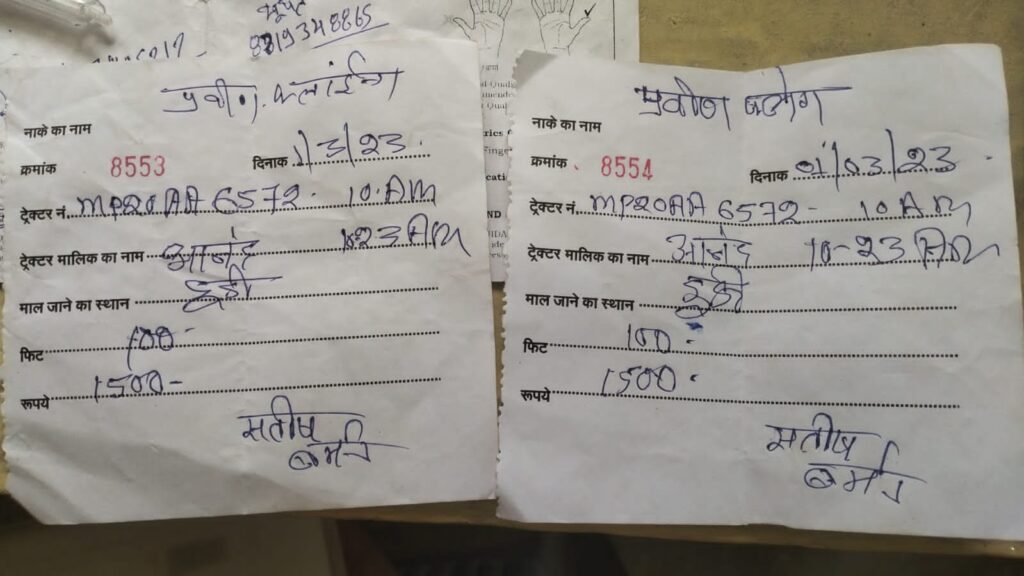 8819348865
प्रवीण
नाके का नाम
क्रमांक 8553 दिनाक 1/3/23
ट्रेक्टर नं. MP20AA6572- 10 AM
ट्रेक्टर मालिक का नाम आनंद 10-23 AM
माल जाने का स्थान
फिट 100-
रूपये 1500-
सतीष
बर्मन
प्रवीण
नाके का नाम
क्रमांक 8554 दिनाक 01/03/23
ट्रेक्टर नं. MP20AA6572- 10 AM
ट्रेक्टर मालिक का नाम आनंद 10-23 AM
माल जाने का स्थान
फिट 100-
रूपये 1500-
सतीष
बर्मन